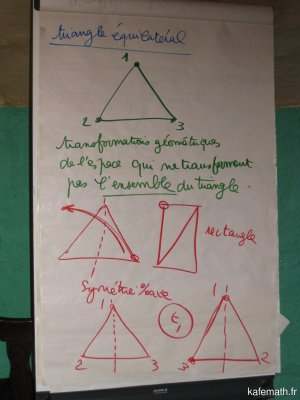 triangle équilatéral
1
2 3
transformations géométriques
de l'espace qui ne transforment
pas l'ensemble du triangle.
rectangle
Symétrie % axe
1 1
t1
2 3 3 2
kafemath.fr